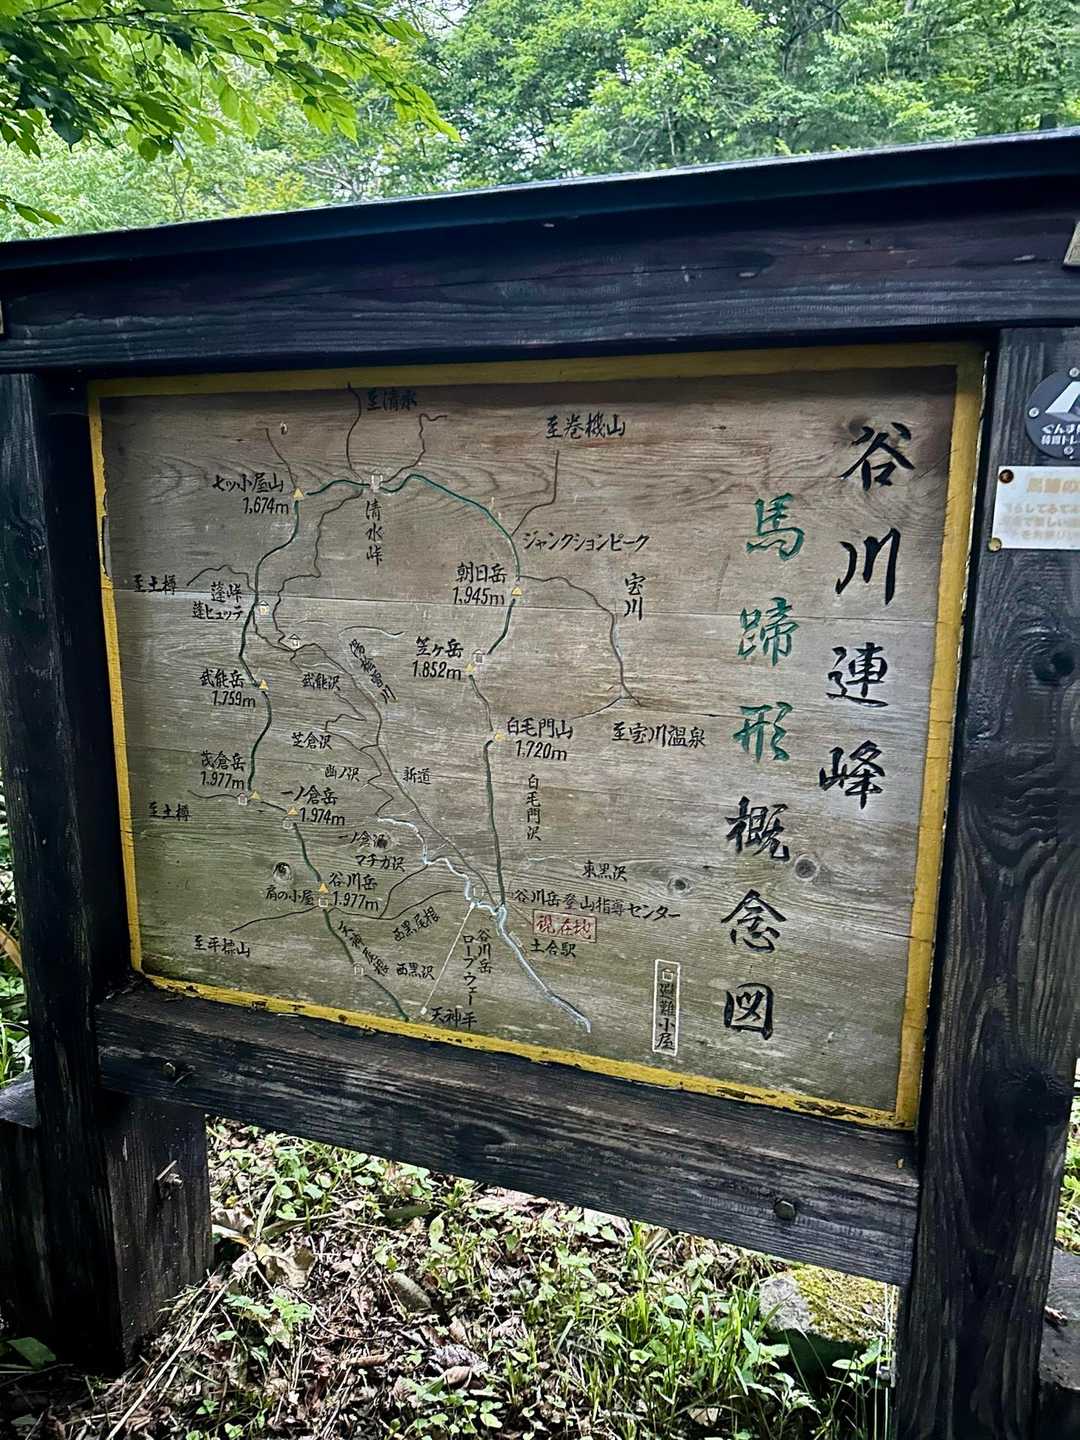 谷川連峰
馬蹄形概念図
至清水
至巻機山
七ッ小屋山
1,674m
清水峠
ジャンクションピーク
朝日岳
1,945m
宝川
至土樽
蓬峠
蓬ヒュッテ
笠ヶ岳
1.852m
湯桧曽川
武能岳
1.759m
武能沢
白毛門山
1.720m
至宝川温泉
芝倉沢
茂倉岳
1.977m
幽ノ沢
新道
白毛門沢
一ノ倉岳
1.974m
至土樽
一ノ倉沢
マチガ沢
東黒沢
谷川岳
1.977m
肩の小屋
谷川岳登山指導センター
現在地
土合駅
西黒尾根
天神尾根
至平標山
西黒沢
谷川岳
ロープウェー
天神平
避難小屋
ぐんま